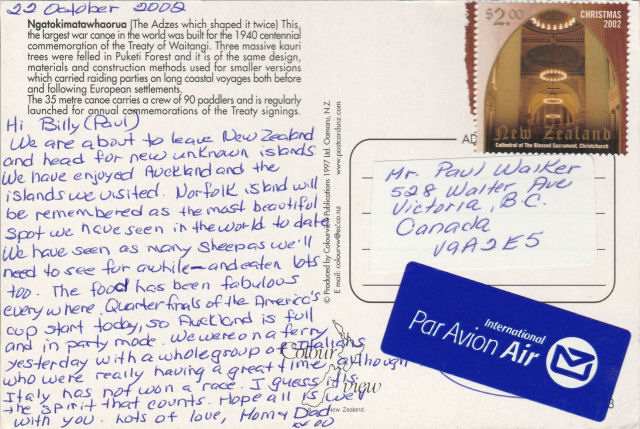 22 October 2002
Ngatokimatawhaorua (The Adzes which shaped it twice) This,
the largest war canoe in the world was built for the 1940 centennial
commemoration of the Treaty of Waitangi. Three massive kauri
trees were felled in Puketi Forest and it is of the same design,
materials and construction methods used for smaller versions
which carried raiding parties on long coastal voyages both before
and following European settlements.
The 35 metre canoe carries a crew of 90 paddlers and is regularly
launched for annual commemorations of the Treaty signings.
Hi Billy (Paul)
We are about to leave New Zealand
and head for new unknown islands
We have enjoyed Auckland and the
islands we visited. Norfolk island will
be remembered as the most beautiful
spot we have seen in the world to date
We have seen as many sheep as we'll
need to see for awhile - and eaten lots
too. The food has been fabulous
everywhere. Quarter finals of the America's
cup start today, so Auckland is full
and in party mode. We were on a ferry
yesterday with a whole group of Italians
who were really having a great time although
Italy has not won a race. I guess it is
the spirit that counts. Hope all is well
with you. Lots of love, Mom & Dad
xx oo
© Produced by Colourview Publications 1997 Ltd. Oamaru, N.Z.
E mail: colourvw@es.co.nz
www.postcardsnz.com
Colour
view
New Zealand
$2.00
CHRISTMAS
2002
New Zealand
Cathedral of The Blessed Sacrament, Christchurch
AD
Mr. Paul Walker
528 Walter Ave
Victoria, B.C.
Canada
V9A2E5
International
Par Avion Air
3